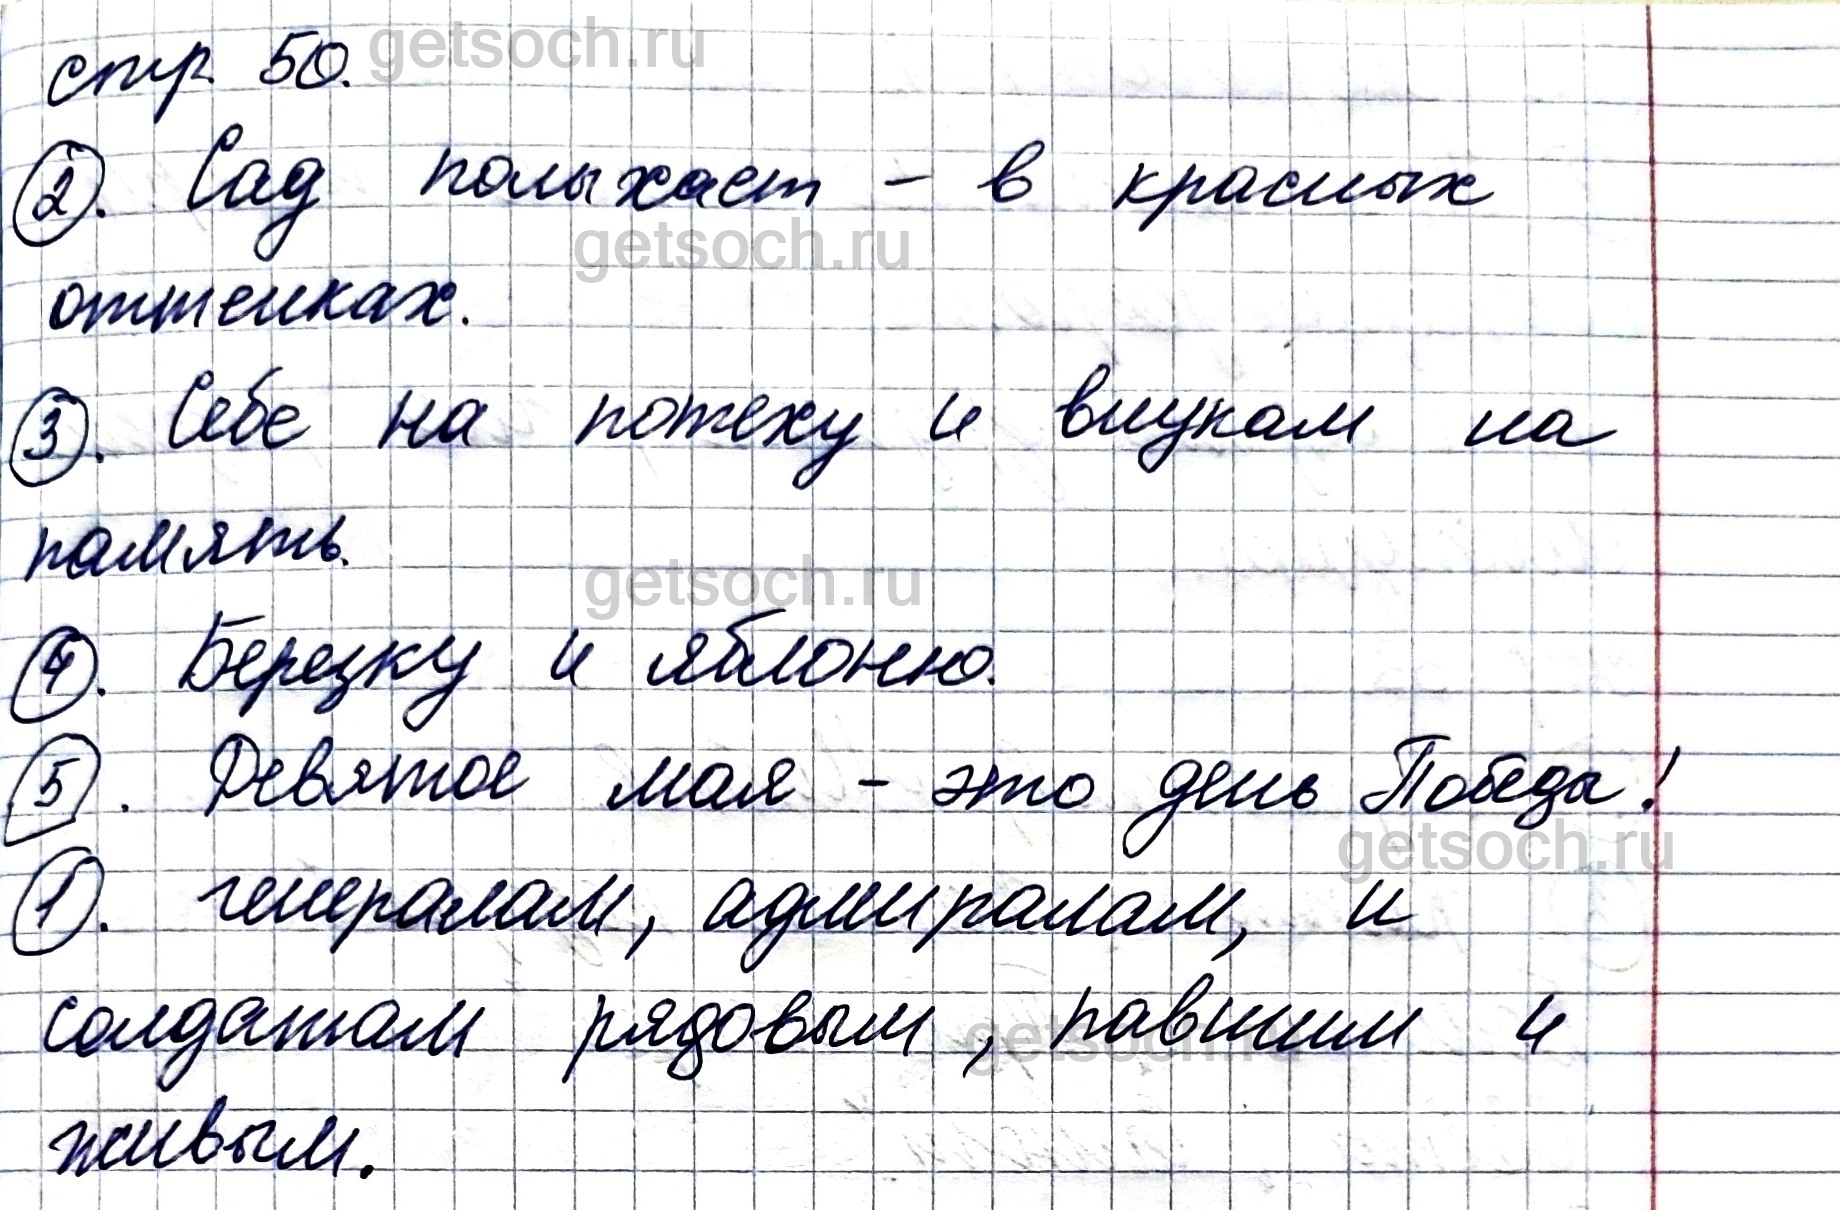 стр. 50. getsoch.ru
2. Сад полыхает - в красных
getsoch.ru
оттенках.
3. Себе на потеху и внукам на
память.
getsoch.ru
4. Березку и яблоню.
5. Девятое мая - это день Победы!
getsoch.ru
1. генералам, адмиралам, и
солдатам рядовым, павшим и
getsoch.ru
живым.